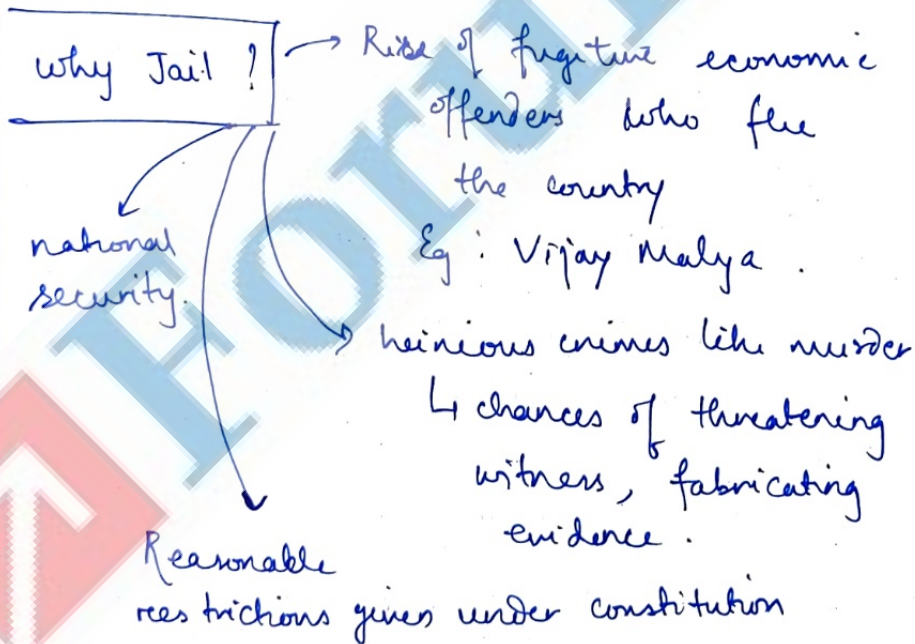 why Jail ?
Rise of fugitive economic
offenders who flee
the country
Eg : Vijay Malya .
national
security.
heinious crimes like murder
↳ chances of threatening
witness, fabricating
evidence .
Reasonable
rees trictions given under constitution
Forum